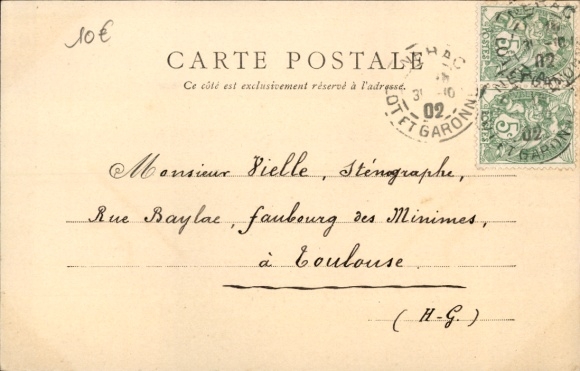 10€
CARTE POSTALE
Ce côté est exclusivement réservé à l'adresse.
02
LOT ET GARONNE
5c
POSTES
5c
POSTES
Monsieur Vielle, Sténographe,
Rue Baylac, faubourg des Minimes,
à Toulouse
(H-G.)